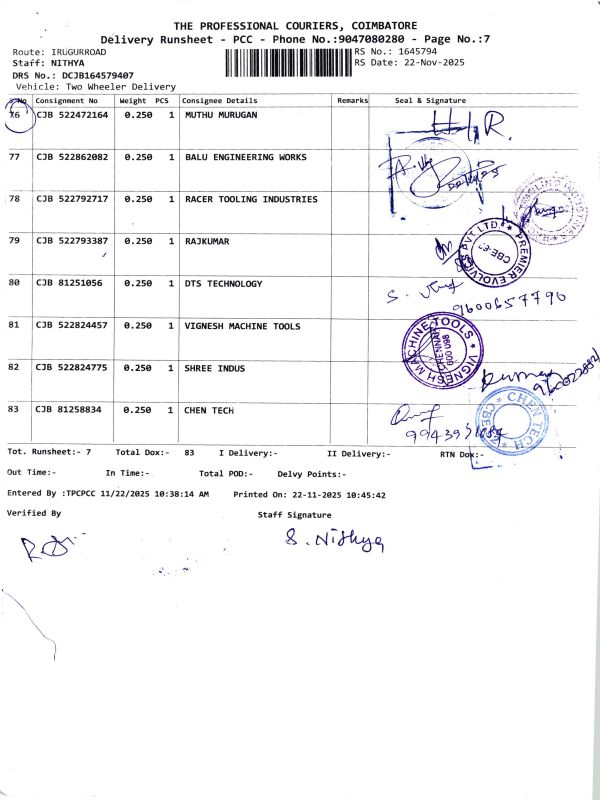 THE PROFESSIONAL COURIERS, COIMBATORE
Delivery Runsheet - PCC - Phone No.:9047080280 - Page No.:7
Route: IRUGURROAD
RS No.: 1645794
Staff: NITHYA
RS Date: 22-Nov-2025
DRS No.: DCJB164579407
Vehicle: Two Wheeler Delivery
S.No Consignment No Weight PCS Consignee Details Remarks Seal & Signature
76 CJB 522472164 0.250 1 MUTHU MURUGAN
77 CJB 522862082 0.250 1 BALU ENGINEERING WORKS
78 CJB 522792717 0.250 1 RACER TOOLING INDUSTRIES
79 CJB 522793387 0.250 1 RAJKUMAR
PREMIER EVOLVICS PVT LTD
80 CJB 81251056 0.250 1 DTS TECHNOLOGY
9600657790
81 CJB 522824457 0.250 1 VIGNESH MACHINE TOOLS
VIGNESH MACHINE TOOLS
CHENNAI
600 098
82 CJB 522824775 0.250 1 SHREE INDUS
83 CJB 81258834 0.250 1 CHEN TECH
CHEN TECH
Tot. Runsheet:- 7 Total Dox:- 83 I Delivery:- II Delivery:- RTN Dox:-
Out Time:- In Time:- Total POD:- Delvy Points:-
Entered By :TPCPCC 11/22/2025 10:38:14 AM Printed On: 22-11-2025 10:45:42
Verified By Staff Signature
S. Nithya